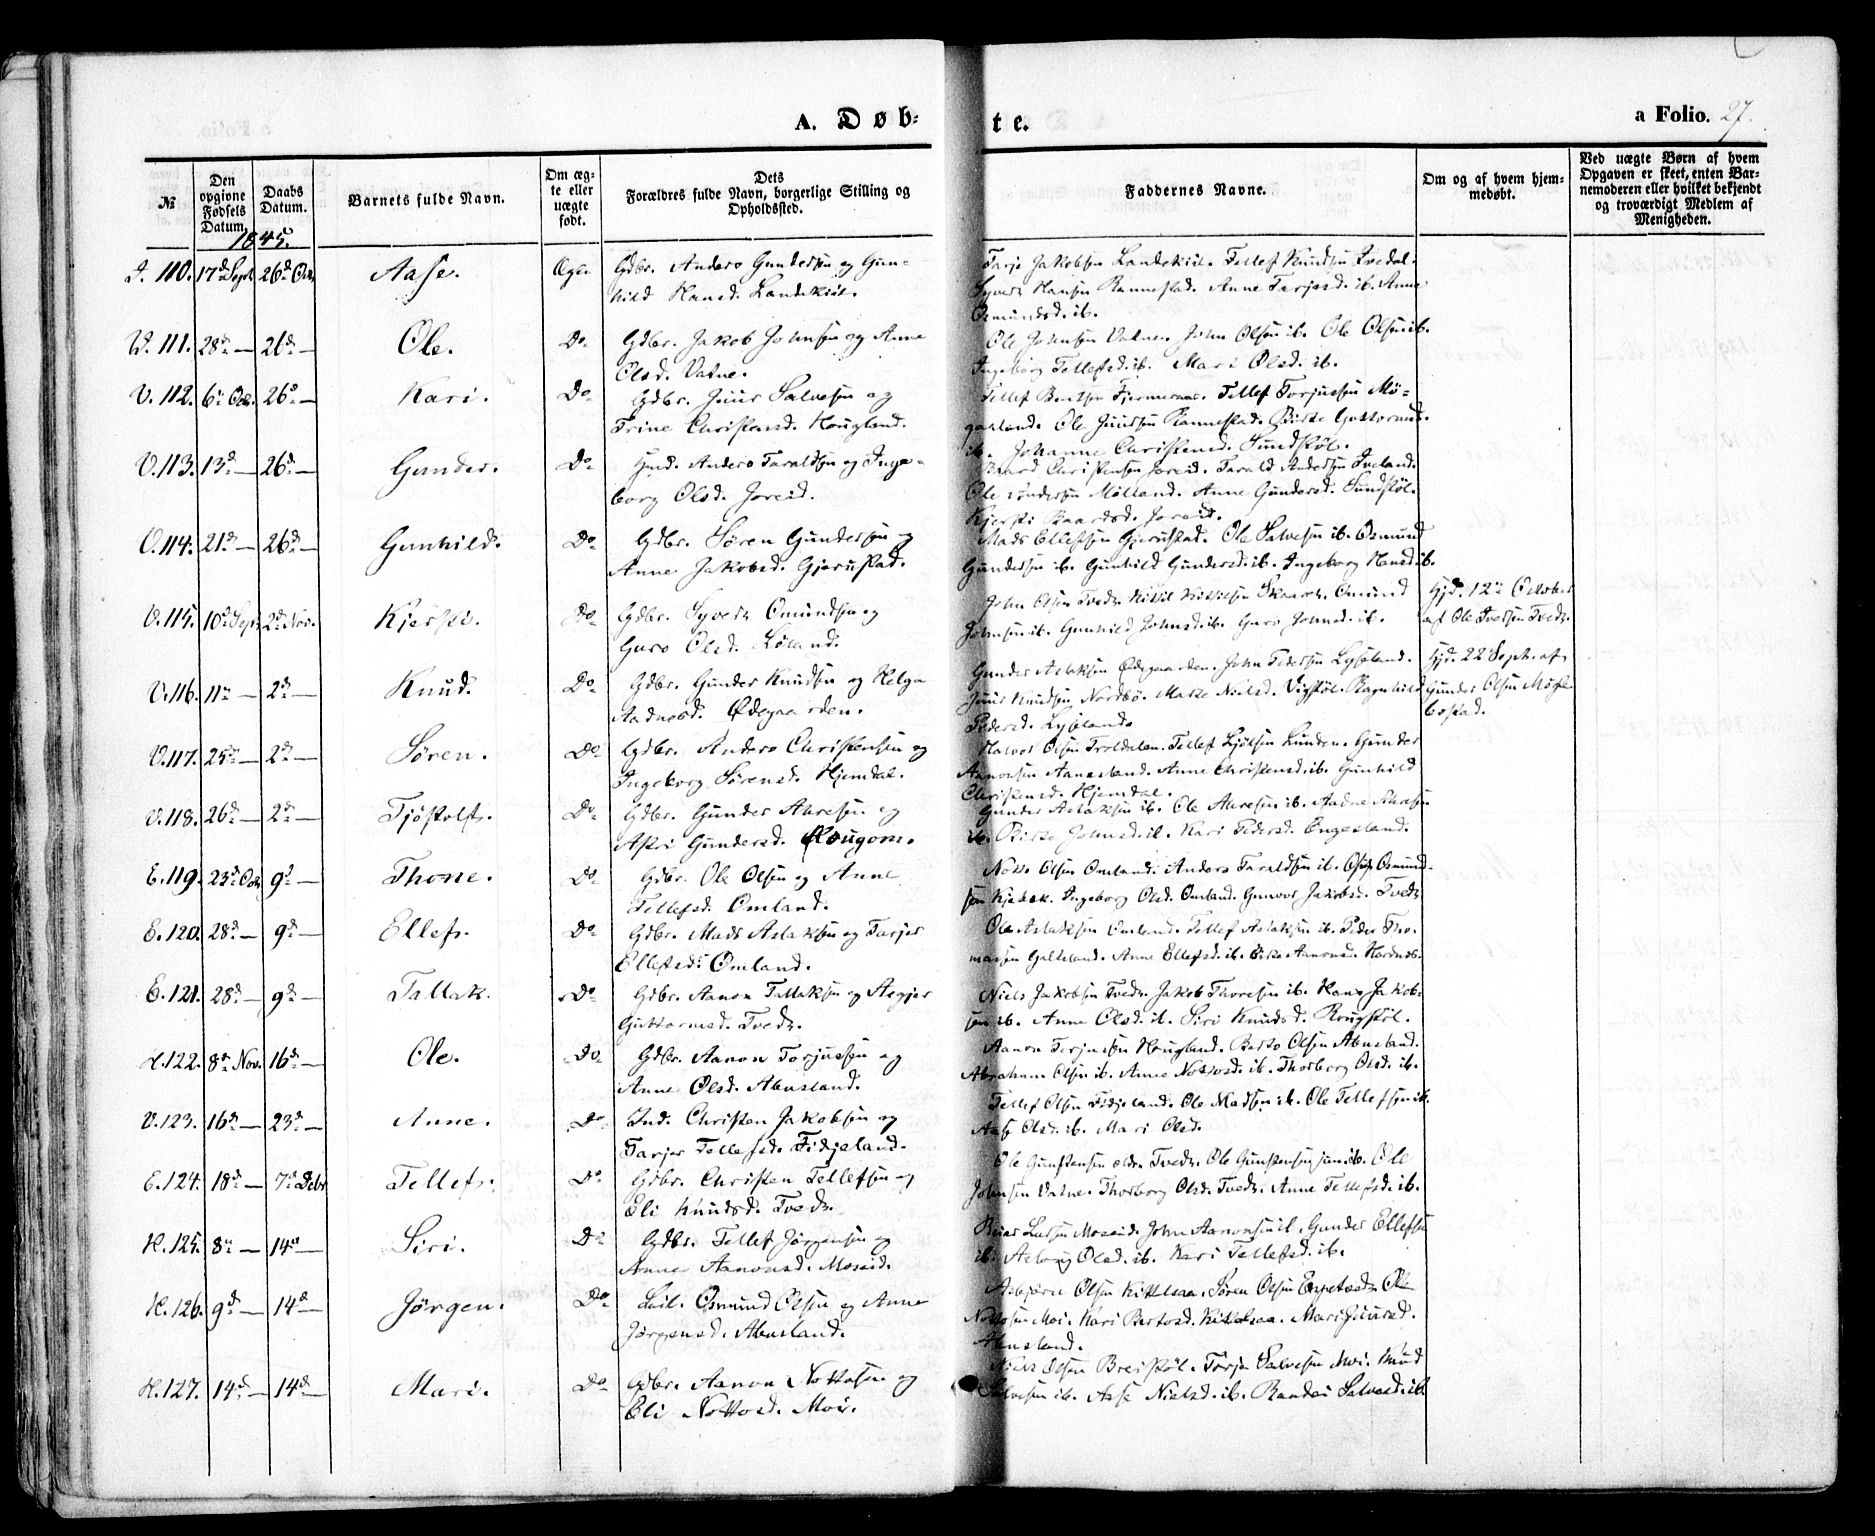 A. Døb-
te.
a Folio. 27.
№
Den opgivne Fødsels Datum.
Daabs Datum.
Barnets fulde Navn.
Om ægte eller uægte født.
Dets Forældres fulde Navn, borgerlige Stilling og Opholdssted.
Faddernes Navne.
Om og af hvem hjemmedøbt.
Ved uægte Børn af hvem Opgaven er skeet, enten Barnemoderen eller hvilket bekjendt og troværdigt Medlem af Menigheden.
1845.
110. 17d Sept. 26d Oct. Aase. Ægte Gdbr. Anders Gundersen og Gun-
hild Hansd. Landskiöl.
Tarje Jakobsen Landskiöl. Tellef Knudsen Ivedal.
Syvert Hansen Rannestad. Anne Tarjesd. ib. Anne
Osmundsd. ib.
V. 111. 28d — 26d — Ole. Do Gdbr. Jakob Johnsen og Anne
Olsd. Vatne.
Ole Johnsen Vatne. John Olsen ib. Ole Olsen ib.
Ingebörg Tellefsd. ib. Mari Olsd. ib.
V. 112. 6te Oct. 26d — Kari. Do Gdbr. Juur Salvesen og
Trine Christensd. Hougland.
Tellef Bentsen Fjermeraas. Tellef Torjussen Mö-
galand. Ole Juursen Rannestad. Birte Guttormsd.
ib. Johanne Christensd. Sundstöl.
V. 113. 13d — 26d — Gunder. Do Hmd. Anders Taraldsen og Inge-
borg Olsd. Joreid.
Baard Christensen Joreid. Tarald Andersen Iveland.
Ole Gundersen Mölland. Anne Gundersd. Sundstöl.
Kjersti Baardsd. Joreid.
V. 114. 21d — 26d — Gunhild. Do Gdbr. Sören Gundersen og
Anne Jakobsd. Gjerustad.
Mads Ellefsen Gjerustad. Ole Salvesen ib. Osmund
Gundersen ib. Gunhild Gundersd. ib. Ingeborg Hansd. ib.
V. 115. 10d Sept. 2d Nov. Kjersti. Do Gdbr. Syvert Omundsen og
Guro Olsd. Röland.
John Olsen Tvedt. Kittil Kittilsen Skaaret. Omund
Johnsen ib. Gunhild Johnsd. ib. Guro Johnsd. ib.
Hjd. 12te October
af Ole Iversen Tvedt.
V. 116. 11te — 2d — Knud. Do Gdbr. Gunder Knudsen og Helga
Aadnesd. Ödegaarden.
Gunder Aslaksen Ödegaarden. John Pedersen Lyseland.
Juur Knudsen Nordbö. Marte Nielsd. Vigstöl. Ragnhild
Pedersd. Lyseland.
Hjd. 22 Septb. af
Gunder Olsen Mögle-
bostad.
V. 117. 25de — 2d — Sören. Do Gdbr. Anders Christensen og
Ingeborg Sörensd. Hjemdal.
Halvor Olsen Troldalen. Tellef Ljölsen Lunden. Gunder
Aanonsen Aanesland. Anne Christensd. ib. Gunhild
Christensd. Hjemdal.
V. 118. 26d — 2d — Tjöstolf. Do Gdbr. Gunder Aavesen og
Astri Gundersd. Rougom.
Gunder Aslaksen ib. Ole Aavesen ib. Aadne Aavesen
ib. Birte Johnsd. ib. Kari Pedersd. Engesland.
E. 119. 23d Oct. 9d — Thone. Do Gdbr. Ole Olsen og Anne
Tellefsd. Omland.
Notto Olsen Omland. Anders Taraldsen ib. Osmund-
sen Kjetsak. Ingeborg Olsd. Omland. Gunvor Jakobsd. Tvedt.
E. 120. 28d — 9d — Ellef. Do Gdbr. Mads Aslaksen og Tarjer
Ellefsd. Omland.
Ole Aslaksen Omland. Tellef Aslaksen ib. Peder Tho-
massen Galteland. Anne Ellefsd. ib. Birte Aanonsd. Hordnes.
E. 121. 28d — 9d — Tallak. Do Gdbr. Aanon Tallaksen og Asgjer
Guttormsd. Tvedt.
Niels Jakobsen Tvedt. Jakob Thoresen ib. Hans Jakob-
sen ib. Anne Olsd. ib. Siri Knudsd. Rougstöl.
H. 122. 8de Nov. 16d — Ole. Do Gdbr. Aanon Torjussen og
Anne Olsd. Abusland.
Aanon Terjussen Hougland. Berto Olsen Abusland.
Abraham Olsen ib. Anne Nottosd. ib. Thorborg Olsd. ib.
V. 123. 16d — 23d — Anne. Do Ind. Christen Jakobsen og
Tarjer Tellefsd. Fidjeland.
Tellef Olsen Fidjeland. Ole Madsen ib. Ole Tellefsen ib.
Aase Olsd. ib. Mari Olsd.
E. 124. 18d — 7de Debr. Tellef. Do Gdbr. Christen Tellefsen og
Eli Knudsd. Tvedt.
Ole Gunstensen eldr. Tvedt. Ole Gunstensen jun. ib. Ole
Johnsen Vatne. Thorborg Olsd. Tvedt. Anne Tellefsd. ib.
H. 125. 8de — 14d — Siri. Do Gdbr. Tellef Jörgensen og
Anne Aanonsd. Moseid.
Moseid. John Aanonsen ib. Gunder Ellefsen
ib. Asborg Olsd. ib. Kari Tellefsd. ib.
H. 126. 9d — 14d — Jörgen. Do Leil. Osmund Olsen og Anne
Jörgensd. Abusland.
Asbjörn Olsen Kittelsaa. Sören Olsen Engetvedt. Ole
Nottosen Moi. Kari Bertosd. Kittelsaa. Mari Juursd.
Abusland.
H. 127. 14d — 14d — Mari. Do Gdbr. Aanon Nottosen og
Eli Nottosd. Moi.
Niels Olsen Breistöl. Torje Salvesen Moi. Knud
Salvesen ib. Aase Nielsd. ib. Randei Salvesd. ib.